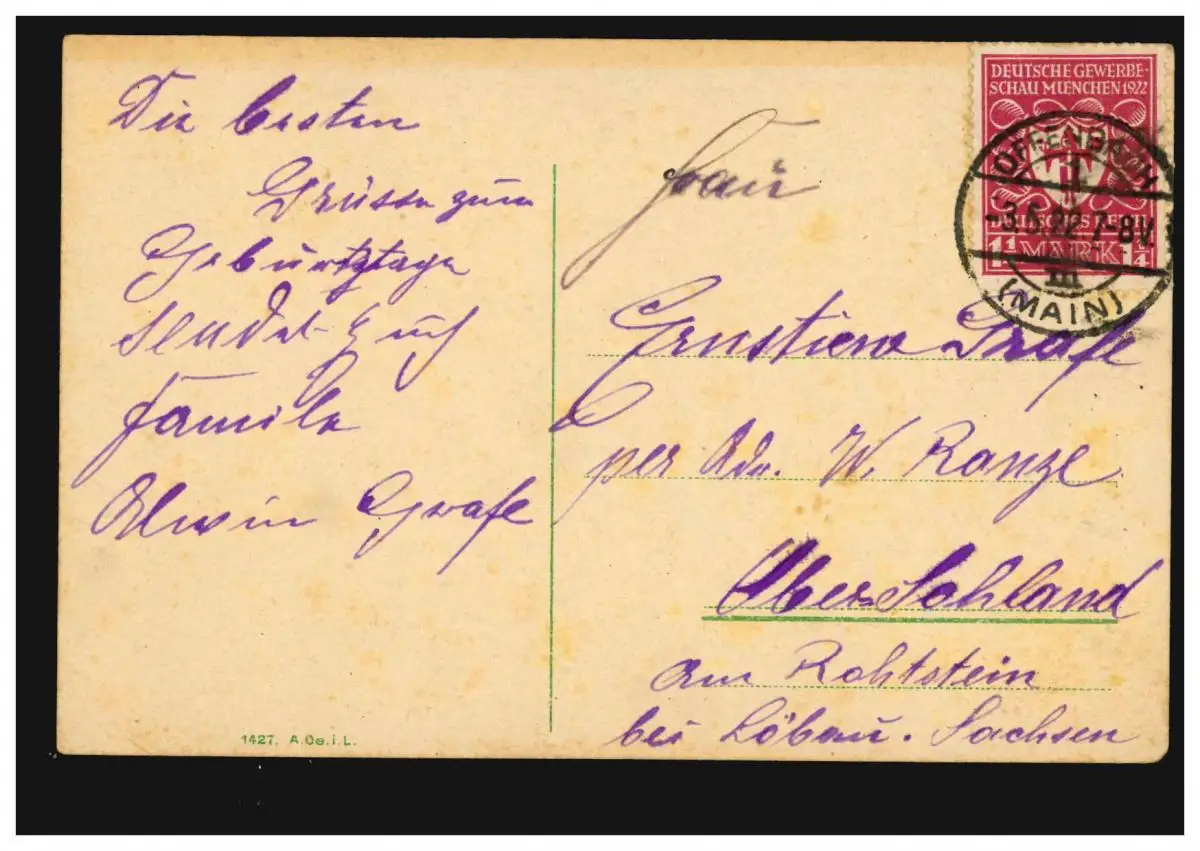 Die besten
Grüsse zum
Geburtztage
sendet Euch
Famile
Alwin Grafe
1427. A.Ce.i.L.
DEUTSCHE GEWERBE-
SCHAU MUENCHEN 1922
DEUTSCHES REICH
1¼ MARK 1¼
OFFENBACH
-3.5.22.7-8V.
(MAIN)
Frau
Ernstiene Grafe
per Adr. W. Ranze
Ober-Sohland
am Rohtstein
bei Löbau. Sachsen